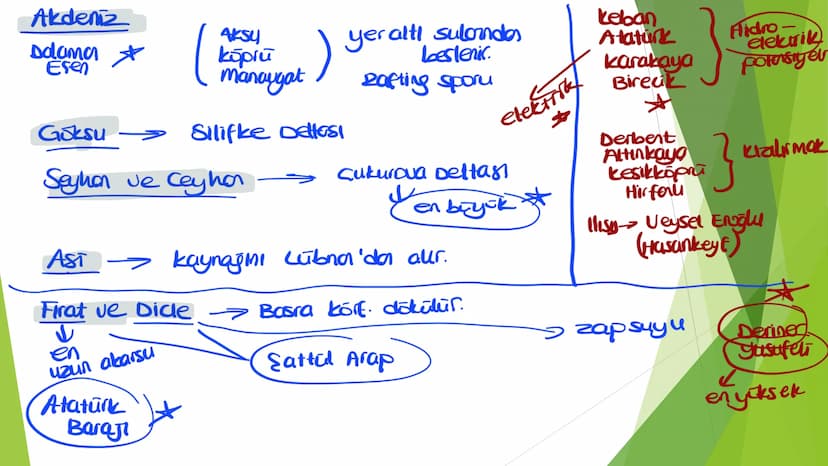 Akdeniz
Dalaman
Esen
Aksu
köprü
Manavgat
yer altı sularından
beslenir.
rafting sporu
Göksu → Silifke Deltası
Seyhan ve Ceyhan → Çukurova Deltası
en büyük
Asi → kaynağını Lübnan'da alır.
Fırat ve Dicle → Basra körf. dökülür.
zap suyu
en
uzun akarsu
Şattül Arap
Atatürk
Barajı
Keban
Atatürk
Karakaya
Birecik
Hidro-
elektrik
potansiyel
elektrik
Derbent
Altınkaya
Kesikköprü
Hirfanlı
Kızılırmak
Ilısu → Veysel Eroğlu
(Hasankeyf)
Deriner
Yusufeli
en yüksek